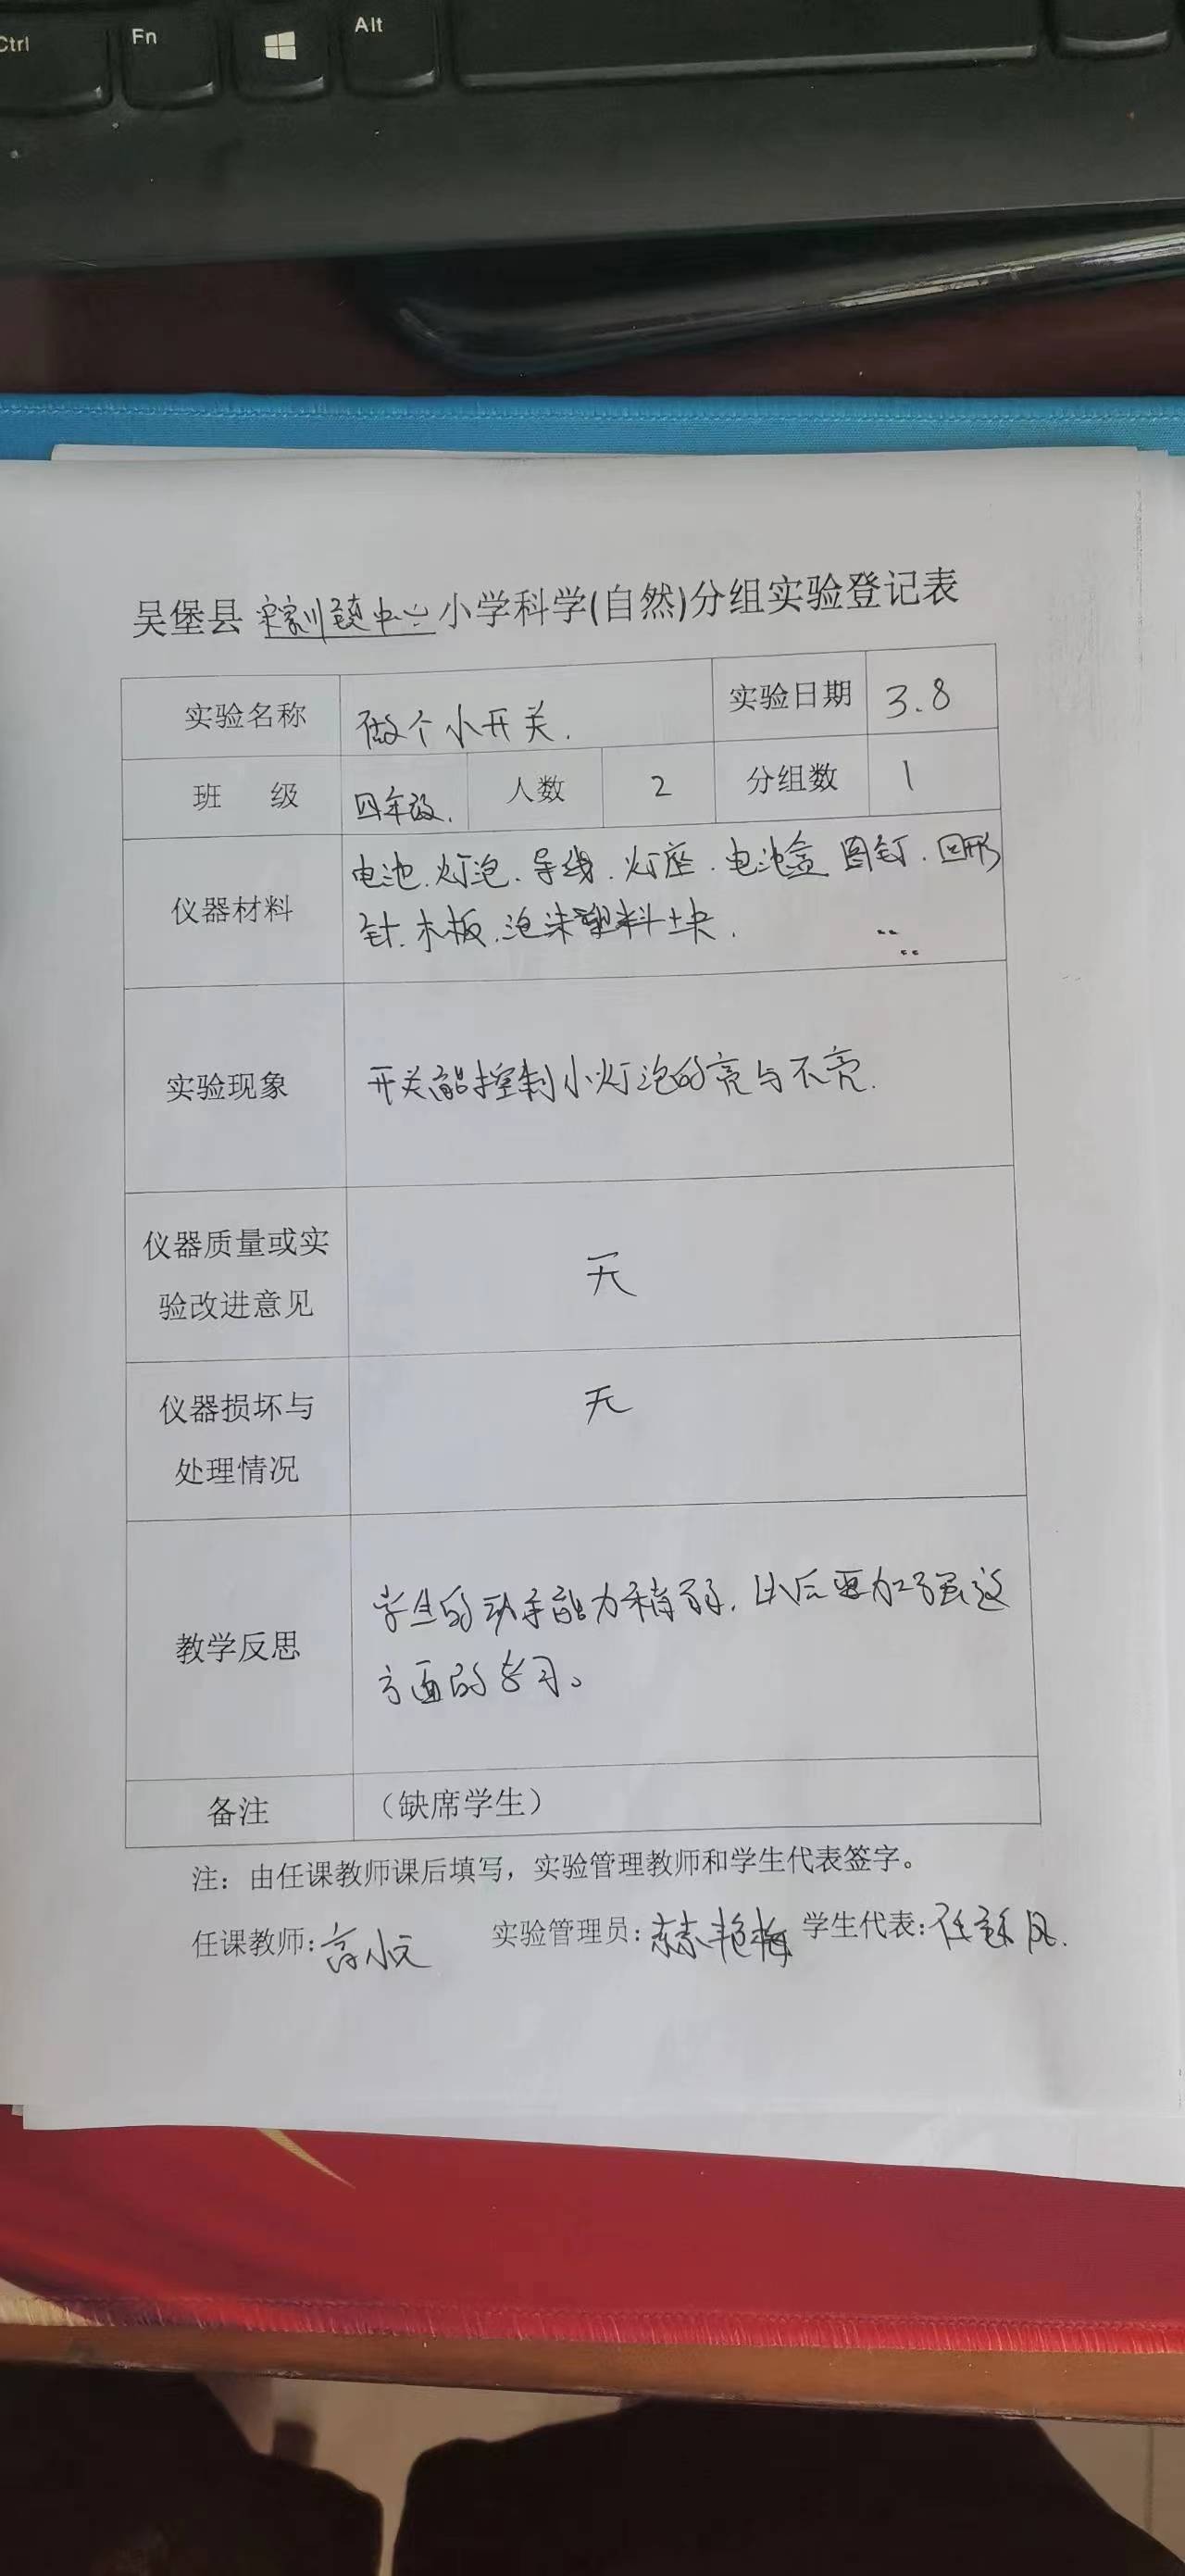 Ctrl Fn Alt
吴堡县宋家川镇中心小学科学(自然)分组实验登记表
实验名称 做个小开关. 实验日期 3.8
班 级 四年级. 人数 2 分组数 1
仪器材料
电池.灯泡.导线.灯座.电池盒 图钉.回形
针.木板.泡沫塑料块.
实验现象 开关能控制小灯泡的亮与不亮.
仪器质量或实
验改进意见
无
仪器损坏与
处理情况
无
教学反思
学生的动手能力稍弱,以后要加强这
方面的学习。
备注 （缺席学生）
注：由任课教师课后填写，实验管理教师和学生代表签字。
任课教师: 实验管理员: 学生代表: